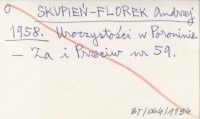 0 SKUPIEŃ-FLOREK Andrzej
1958. Uroczystości w Poroninie.
– Za i Przeciw nr 59.
BT/044/1994